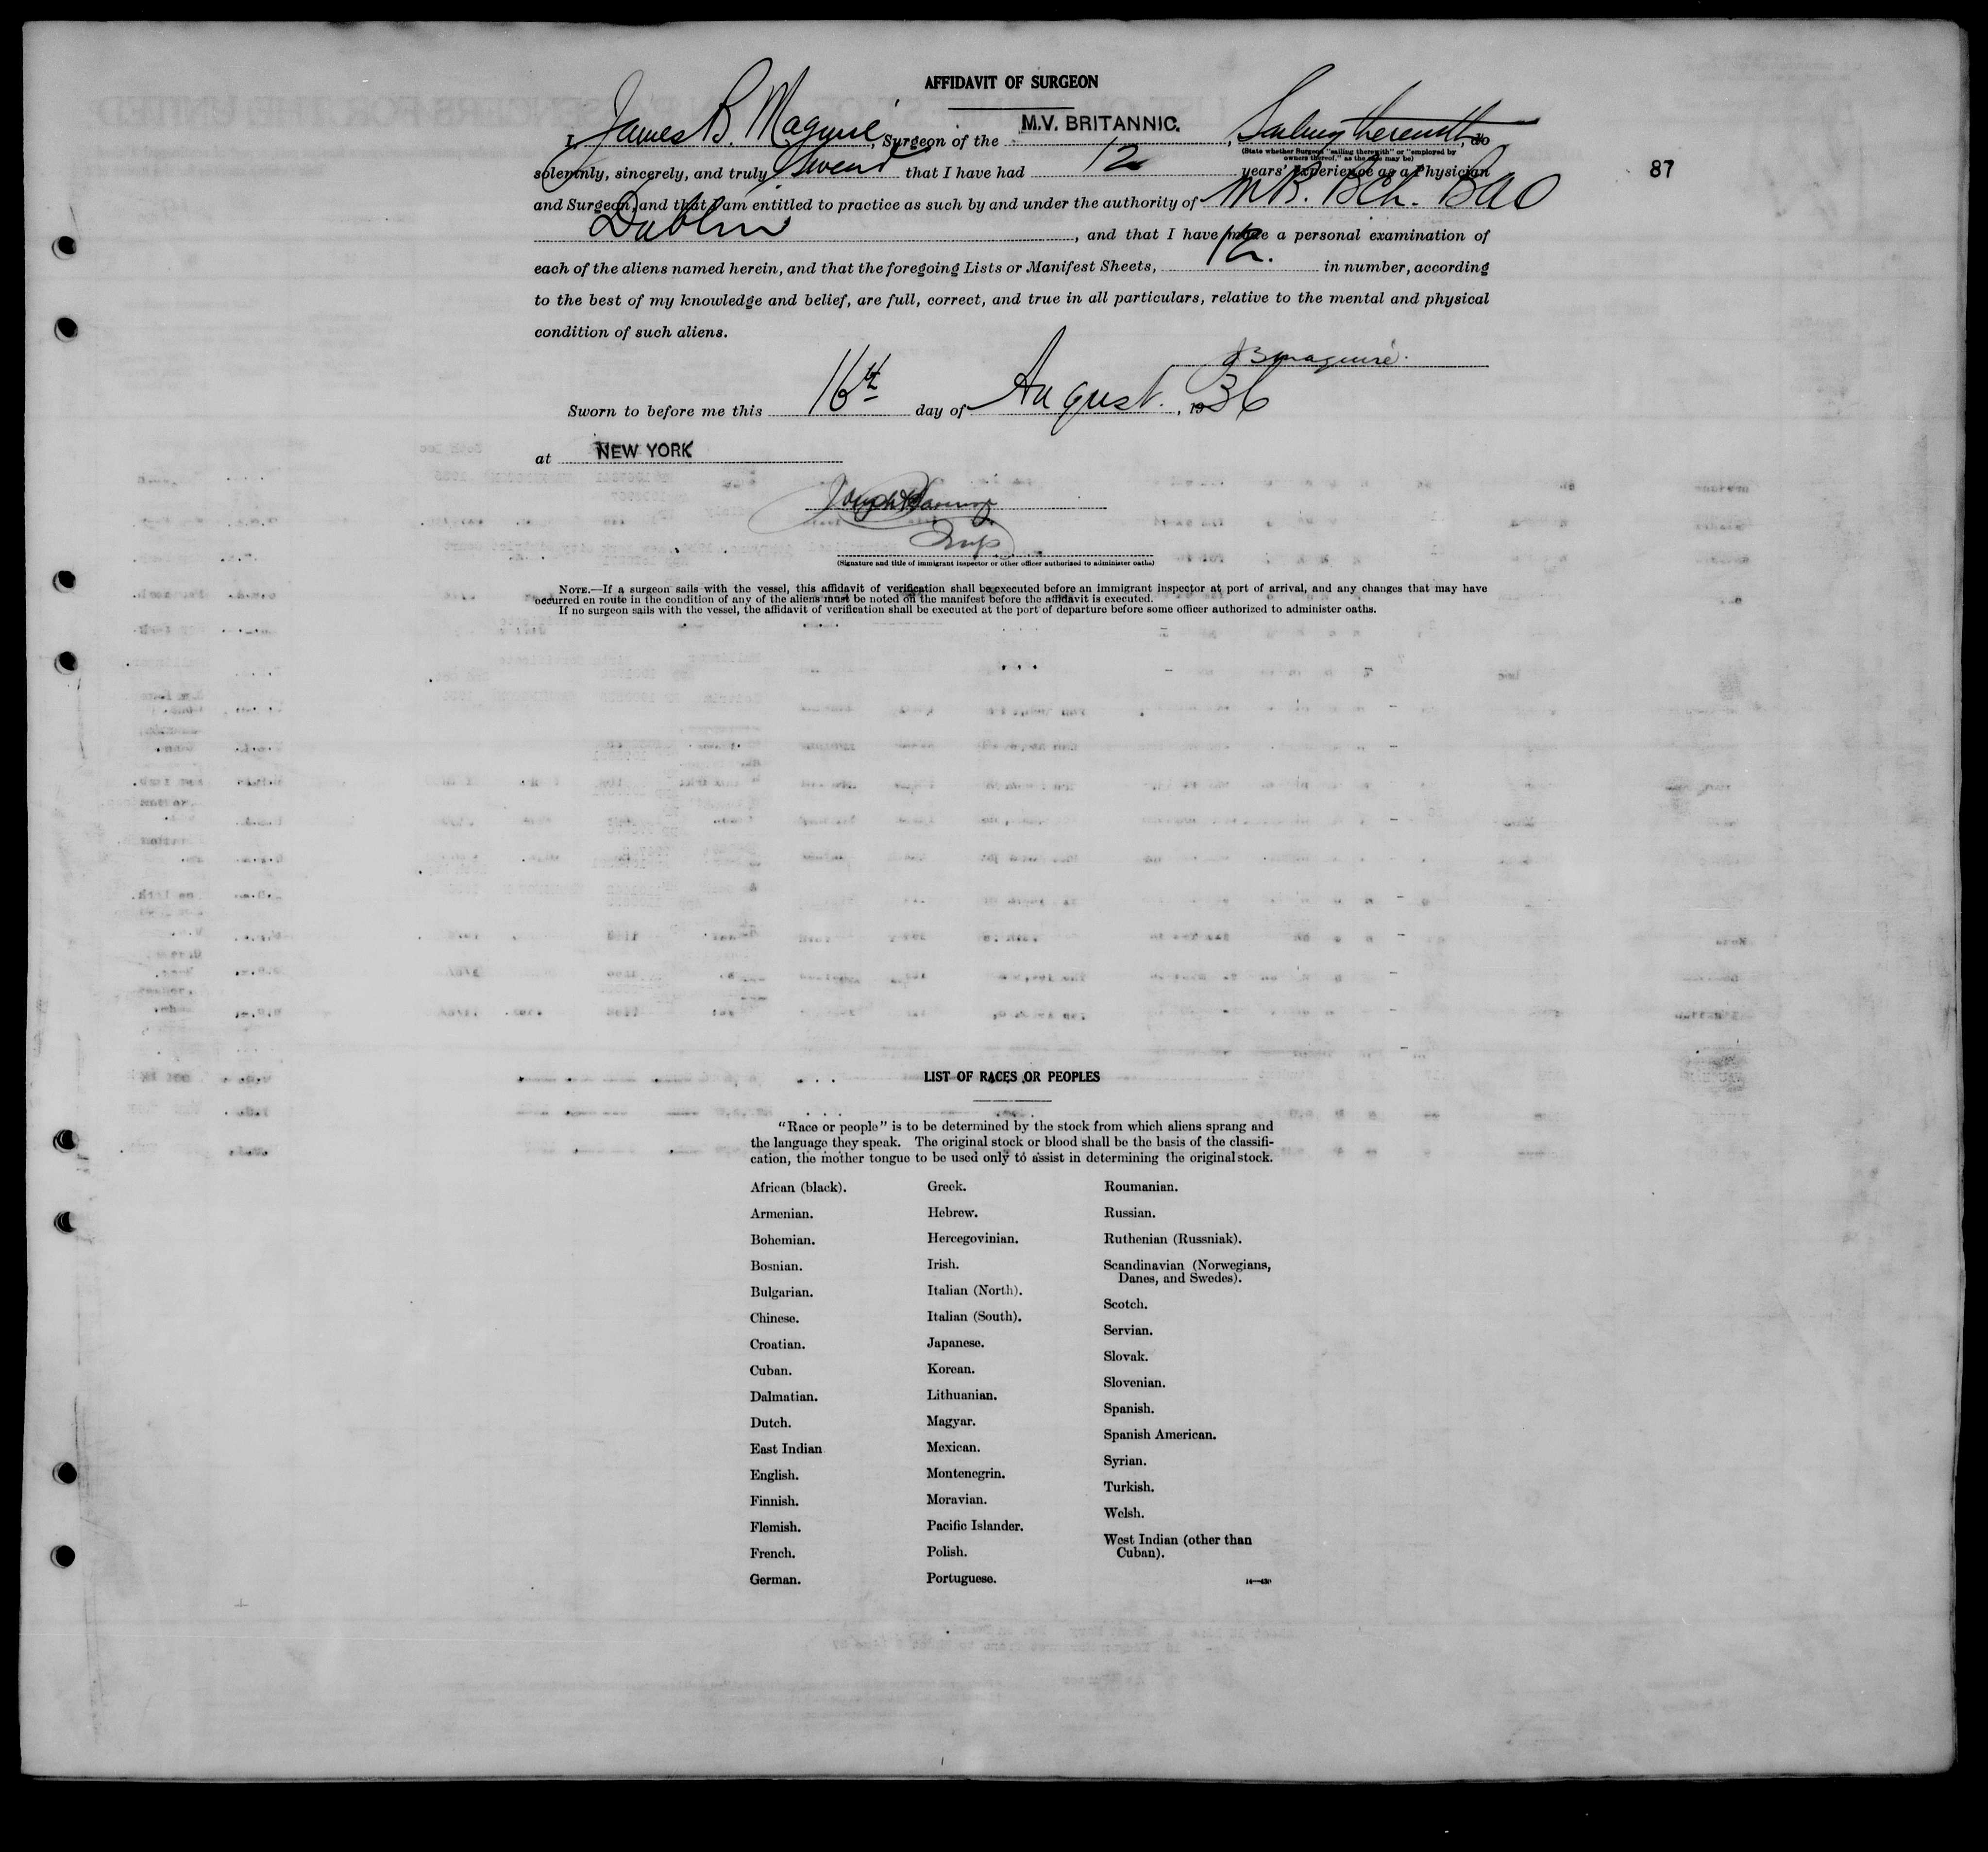 AFFIDAVIT OF SURGEON
I, James B. Maguire, Surgeon of the M.V. BRITANNIC., Sailing therewith, do
(State whether Surgeon "sailing therewith" or "employed by
owners thereof," as the case may be)
solemnly, sincerely, and truly swear that I have had 12 years' experience as a Physician
87
and Surgeon, and that I am entitled to practice as such by and under the authority of M.B. BCh. BAO
Dublin, and that I have made a personal examination of
each of the aliens named herein, and that the foregoing Lists or Manifest Sheets, 12. in number, according
to the best of my knowledge and belief, are full, correct, and true in all particulars, relative to the mental and physical
condition of such aliens.
JB Maguire.
Sworn to before me this 16th day of August., 1936
at NEW YORK
Insp
(Signature and title of immigrant inspector or other officer authorized to administer oaths)
NOTE.—If a surgeon sails with the vessel, this affidavit of verification shall be executed before an immigrant inspector at port of arrival, and any changes that may have
occurred en route in the condition of any of the aliens must be noted on the manifest before the affidavit is executed.
If no surgeon sails with the vessel, the affidavit of verification shall be executed at the port of departure before some officer authorized to administer oaths.
LIST OF RACES OR PEOPLES
"Race or people" is to be determined by the stock from which aliens sprang and
the language they speak. The original stock or blood shall be the basis of the classifi-
cation, the mother tongue to be used only to assist in determining the original stock.
African (black).
Armenian.
Bohemian.
Bosnian.
Bulgarian.
Chinese.
Croatian.
Cuban.
Dalmatian.
Dutch.
East Indian
English.
Finnish.
Flemish.
French.
German.
Greek.
Hebrew.
Hercegovinian.
Irish.
Italian (North).
Italian (South).
Japanese.
Korean.
Lithuanian.
Magyar.
Mexican.
Montenegrin.
Moravian.
Pacific Islander.
Polish.
Portuguese.
Roumanian.
Russian.
Ruthenian (Russniak).
Scandinavian (Norwegians,
Danes, and Swedes).
Scotch.
Servian.
Slovak.
Slovenian.
Spanish.
Spanish American.
Syrian.
Turkish.
Welsh.
West Indian (other than
Cuban).